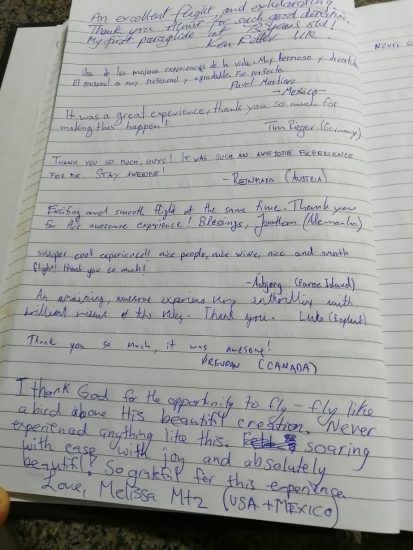 An excellent flight and exhilarating
Thank you for such good direction
My first paraglide at years old!
Ken UK
Una de las mejores experiencias de la vida. Muy hermoso y divertido
El personal es muy profesional y agradable. Fue perfecto.
Pavel Martinez
- Mexico -
It was a great experience, thank you so much for
making this happen!
Tim Rieger (Germany)
THANK YOU SO MUCH, GUYS! IT WAS SUCH AN AWESOME EXPERIENCE
FOR ME. STAY AWESOME!
- REINHARD (AUSTRIA)
Exciting and smooth flight at the same time. Thank you
for this awesome experience! Blessings, Jonathan (Alemania)
super cool experience!! nice people, nice wiwe, nice and smooth
flight! thank you so much!
(Faroe Island)
An amazing, awesome experience very enthralling with
brilliant views of the valley. Thank you. Luke (England)
Thank you so much, it was awesome!
BRENDAN (CANADA)
I thank God for the opportunity to fly - fly like
a bird above His beautiful creation. Never
experienced anything like this. soaring
with ease with joy and absolutely
beautiful. So grateful for this experience.
Love, Melissa Mtz (USA + MEXICO)